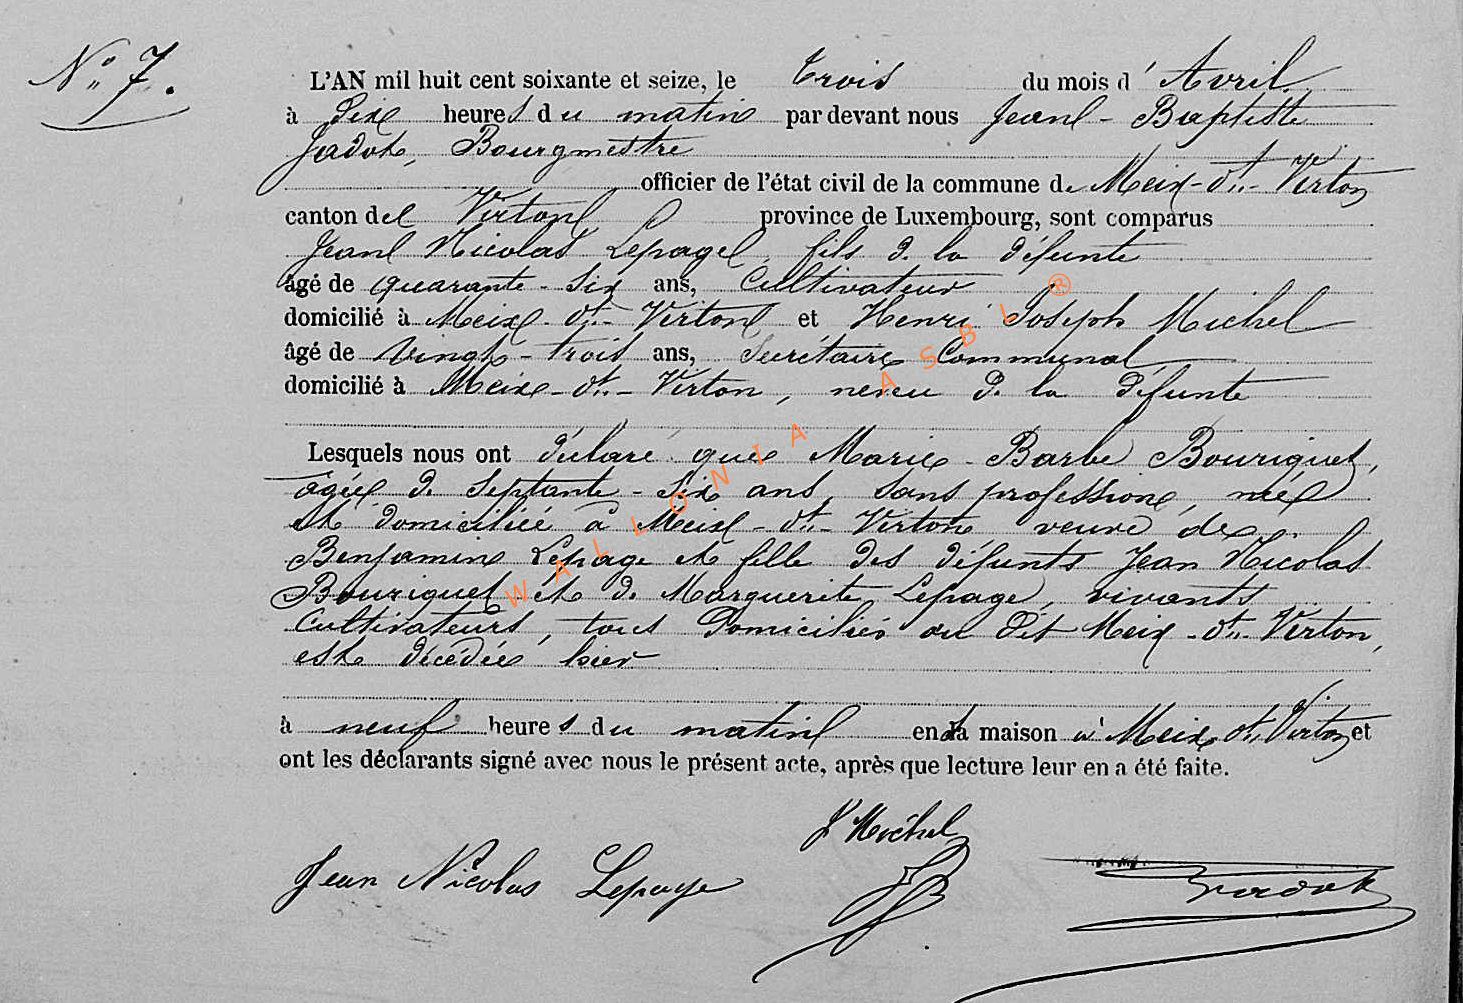 N° 7.
L'AN mil huit cent soixante et seize, le trois du mois d'Avril
à Six heures du matin par devant nous Jean-Baptiste
Jadot, Bourgmestre
officier de l'état civil de la commune de Meix-dt-Virton
canton de Virton province de Luxembourg, sont comparus
Jean Nicolas Lepage, fils de la défunte
âgé de quarante-six ans, Cultivateur
domicilié à Meix-dt-Virton et Henri Joseph Michel
âgé de vingt-trois ans, Secrétaire Communal
domicilié à Meix-dt-Virton, neveu de la défunte
Lesquels nous ont déclaré que Marie-Barbe Bouriguet,
agée de Septante-Six ans, sans profession, née
et domiciliée à Meix-dt-Virton veuve de
Benjamin Lepage et fille des défunts Jean Nicolas
Bouriguet et de Marguerite Lepage, vivants
Cultivateurs, tous Domiciliés au dit Meix-dt-Virton,
est décédée hier
à neuf heures du matin en sa maison à Meix dt Virton et
ont les déclarants signé avec nous le présent acte, après que lecture leur en a été faite.
J Michel
Jean Nicolas Lepage
Jadot
WALLONIA ASBL ®